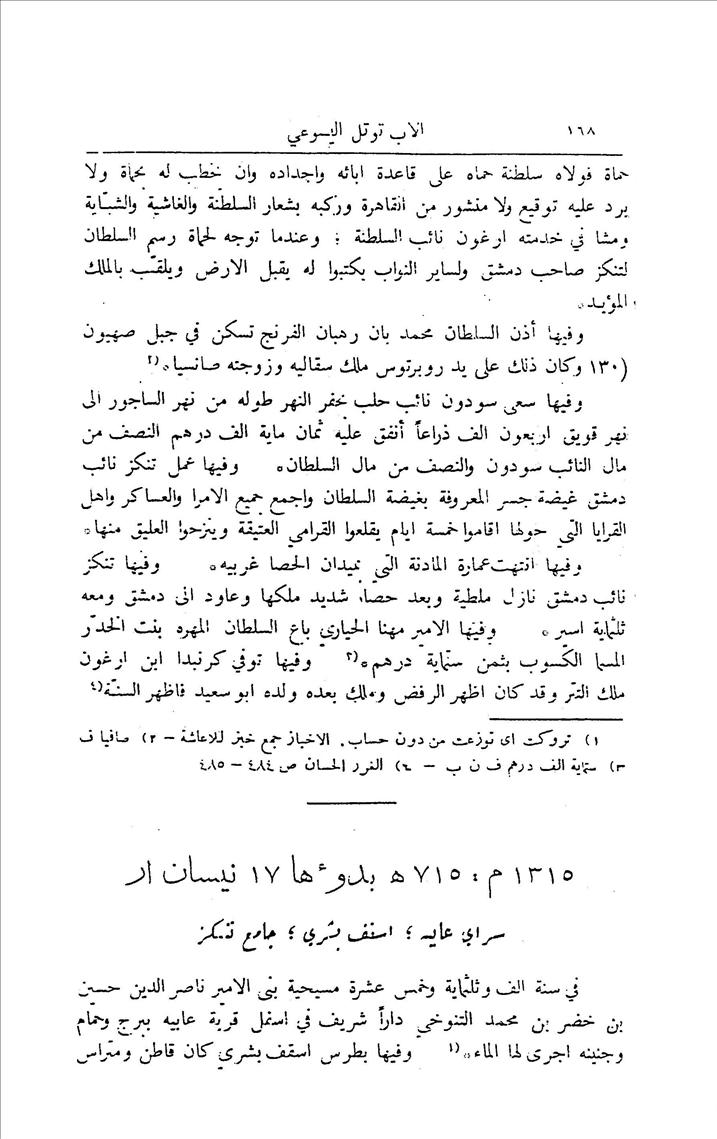 ١٦٨ الاب توتل اليسوعي
حماة فولاه سلطنة حماه على قاعدة ابائه واجداده وان يخطب له بحماة ولا
يرد عليه توقيع ولا منشور من القاهرة وركبه بشعار السلطنة والغاشية والشبّاية
ومشا في خدمته ارغون نائب السلطنة ؛ وعندما توجه لحماة رسم السلطان
لتنكز صاحب دمشق ولساير النواب يكتبوا له يقبل الارض ويلقّب بالملك
المؤيد٭
وفيها أذن السلطان محمد بان رهبان الفرنج تسكن في جبل صهيون
(١٣٠ وكان ذلك على يد روبرتوس ملك سقاليه وزوجته صانسيا٭(٢
وفيها سعى سودون نائب حلب بحفر النهر طوله من نهر الساجور الى
نهر قويق اربعون الف ذراعاً أنفق عليه ثمان ماية الف درهم النصف من
مال النائب سودون والنصف من مال السلطان٭ وفيها عمل تنكز نائب
دمشق غيضة جسر المعروفة بغيضة السلطان واجمع جميع الامرا والعساكر واهل
القرايا التي حولها اقاموا خمسة ايام يقلعوا القرامي العتيقة وينزحوا العليق منها٭
وفيها انتهت عمارة المادنة التي بميدان الحصا غربيه٭ وفيها تنكز
نائب دمشق نازل ملطية وبعد حصار شديد ملكها وعاود الى دمشق ومعه
ثلثماية اسير٭ وفيها الامير مهنا الحياري باع السلطان المهره بنت الخدر
المسما الكسوب بثمن ستماية درهم٭(٣ وفيها توفي كرنبدا ابن ارغون
ملك التتر وقد كان اظهر الرفض وملك بعده ولده ابو سعيد فاظهر السنّة(٤
١) تروكت اى توزعت من دون حساب. الاخباز جمع خبز للاعاشة – ٢) صافيا ف
٣) ستماية الف درهم ف ن ب – ٤) الغرر الحسان ص ٤٨٤ – ٤٨٥
١٣١٥ م : ٧١٥ ھ بدوءها ١٧ نيسان ار
سراي عابيه ؛ اسقف بشري ؛ جامع تنكز
في سنة الف وثلثماية وخمس عشرة مسيحية بنى الامير ناصر الدين حسين
بن خضر بن محمد التنوخي داراً شريف في اسفل قرية عابيه ببرج وحمام
وجنينه اجرى لها الماء٭(١ وفيها بطرس اسقف بشري كان قاطن ومتراس